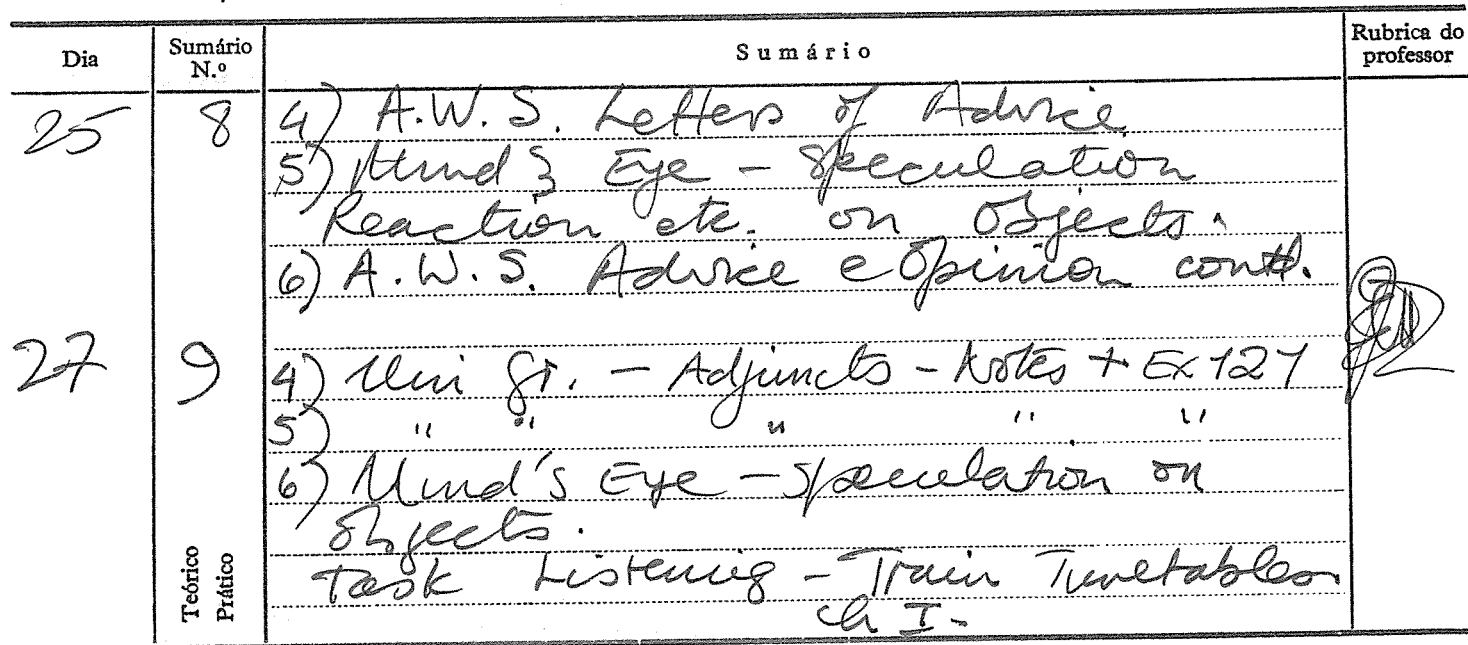 Dia Sumário N.º Sumário Rubrica do professor
25 8 4) A.W.S. Letters of Advice
5) Mind's Eye - Speculation
Reaction etc. on Objects.
6) A.W.S. Advice e Opinion contd.
27 9 4) Uni Gr. - Adjuncts - Notes + Ex 121
5) " " " " "
6) Mind's Eye - Speculation on
Objects.
Task Listening - Train Timetables
ch I.
Teórico
Prático